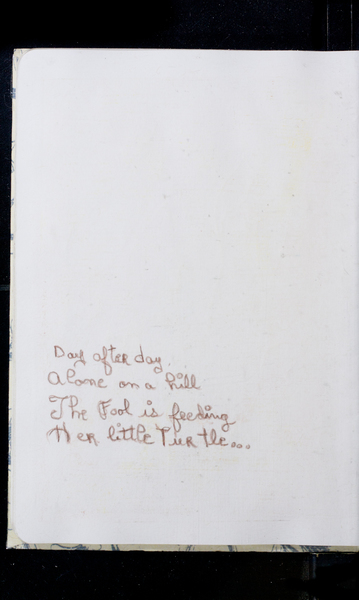 Day after day.
Alone on a hill
The Fool is feeding
Her little Turtle...